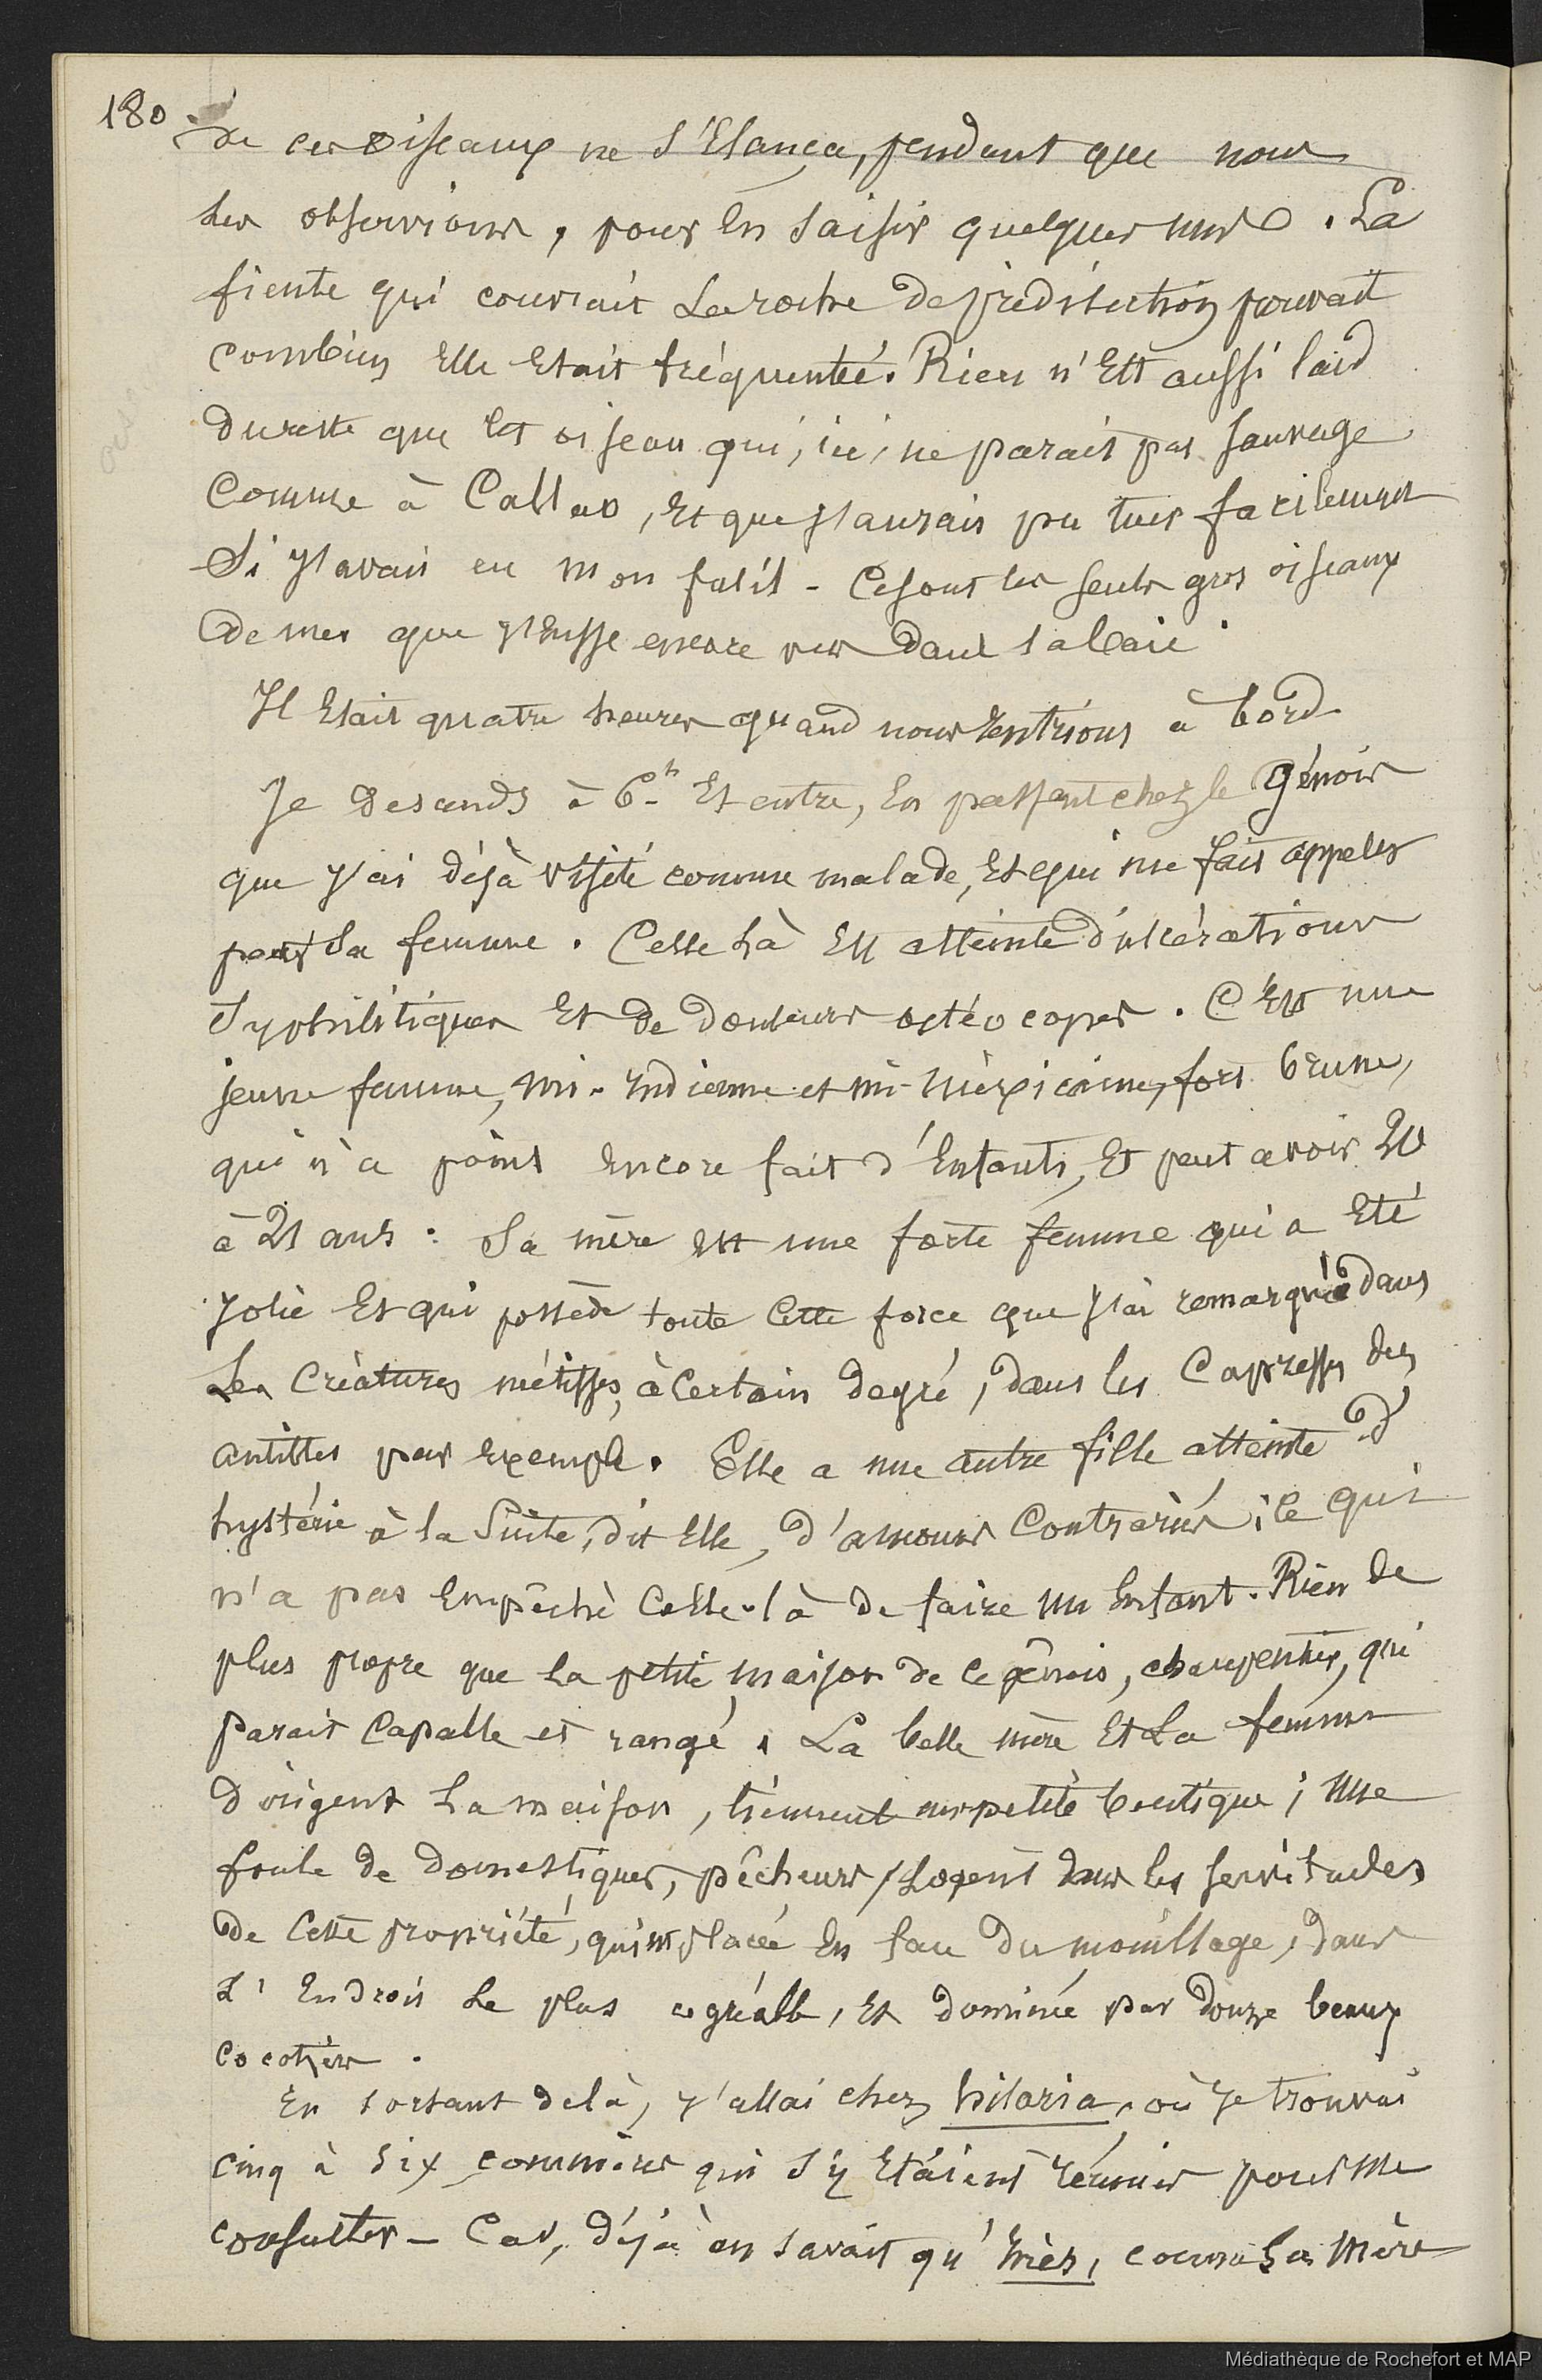 180
de ces oiseaux ne s'Elança, pendant que nous
les observions, pour En saisir quelques uns. La
fiente qui couvrait La roche de prédilection prouvait
combien Elle Etait fréquentée. Rien n'Est aussi laid
du reste que cet oiseau qui, ici, ne parait pas sauvage
comme à Callao, Et que j'aurais pu tuer facilement
Si j'avais eu mon fusil - Ce sont les seuls gros oiseaux
de mer que j'Eusse encore vus dans la baie.
Il Etait quatre heures quand nous rentrions à bord.
Je descends à 6 h Et entre, En passant chez le génois
que j'ai déjà visité comme malade, Et qui me fait appeler
pour Sa femme. Celle là Est atteinte d'ulcérations
Syphilitiques Et de douleurs ostéocopes. C'Est une
jeune femme, mi-indienne et mi-mèxicaine, fort brune,
qui n'a point Encore fait d'Enfants, Et peut avoir 20
à 21 ans : Sa mère Est une forte femme qui a Eté
Jolie Et qui possède toute Cette force que j'ai remarquée dans
Les Créatures métisses, à Certain degré, dans les Capresses des
antilles par Exemple. Elle a une autre fille atteinte d'
hystérie à la Suite, dit Elle, d'amours Contrariés ; ce qui
n'a pas Empêché Celle-là de faire un Enfant. Rien de
plus propre que la petite maison de ce génois, charpentier, qui
parait Capable et rangé. La belle mère Et La femme
dirigent La maison, tiennent une petite boutique ; Une
foule de domestiques, pêcheurs, Logent dans les servitudes
de Cette propriété, qui Est placée En face du mouillage, dans
L'Endroit Le plus agréable, Et dominée par douze beaux
cocotiers.
En sortant de là, j'allai chez hilaria, où Je trouvai
cinq à Six commères qui S'y Etaient réunies pour me
consulter - Car, déjà on savait qu'Inès, comme Sa Mère
Médiathèque de Rochefort et MAP